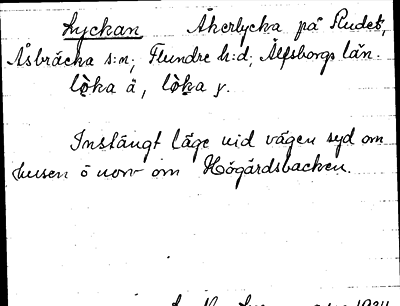 Lyckan Åkerlycka på Rudet,
Åsbräcka s:n; Flundre h:d; Älfsborgs län.
lòka ä, lòka y.
Instängt läge vid vägen syd om
husen ö norr om Högårdsbacken.
1934